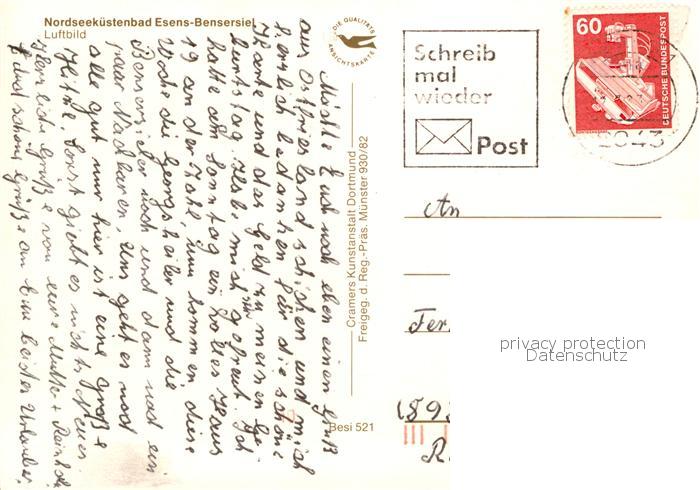 Nordseeküstenbad Esens-Bensersiel
Luftbild
DIE QUALITÄTS
ANSICHTSKARTE
Schreib
mal
wieder
Post
60
DEUTSCHE BUNDESPOST
2943
Möchte Euch noch eben einen Gruß
aus Ostfriesland schicken und mich
herzlich bedanken für die schöne
Karte und das Geld zu meinen Ge-
burtstag. Habe mich sehr gefreut. Ich
hatte am Sonntag ein volles Haus
19 an der Zahl, nun kommen diese
Woche die Georgsheiler und die
Bensersieler noch und dann noch ein
paar Nachbaren, uns geht es noch
alle gut nur hier ist eine große
Hitze. Sonst giebt es nichts Neues.
Herzliche Grüße von eure Mutter + Reinhold
+ auch schöne Grüße an Eure beiden Urlauber.
Cramers Kunstanstalt Dortmund
Freigeg. d. Reg.-Präs. Münster 930/82
Besi 521
An
Fer
(893
R
privacy protection
Datenschutz